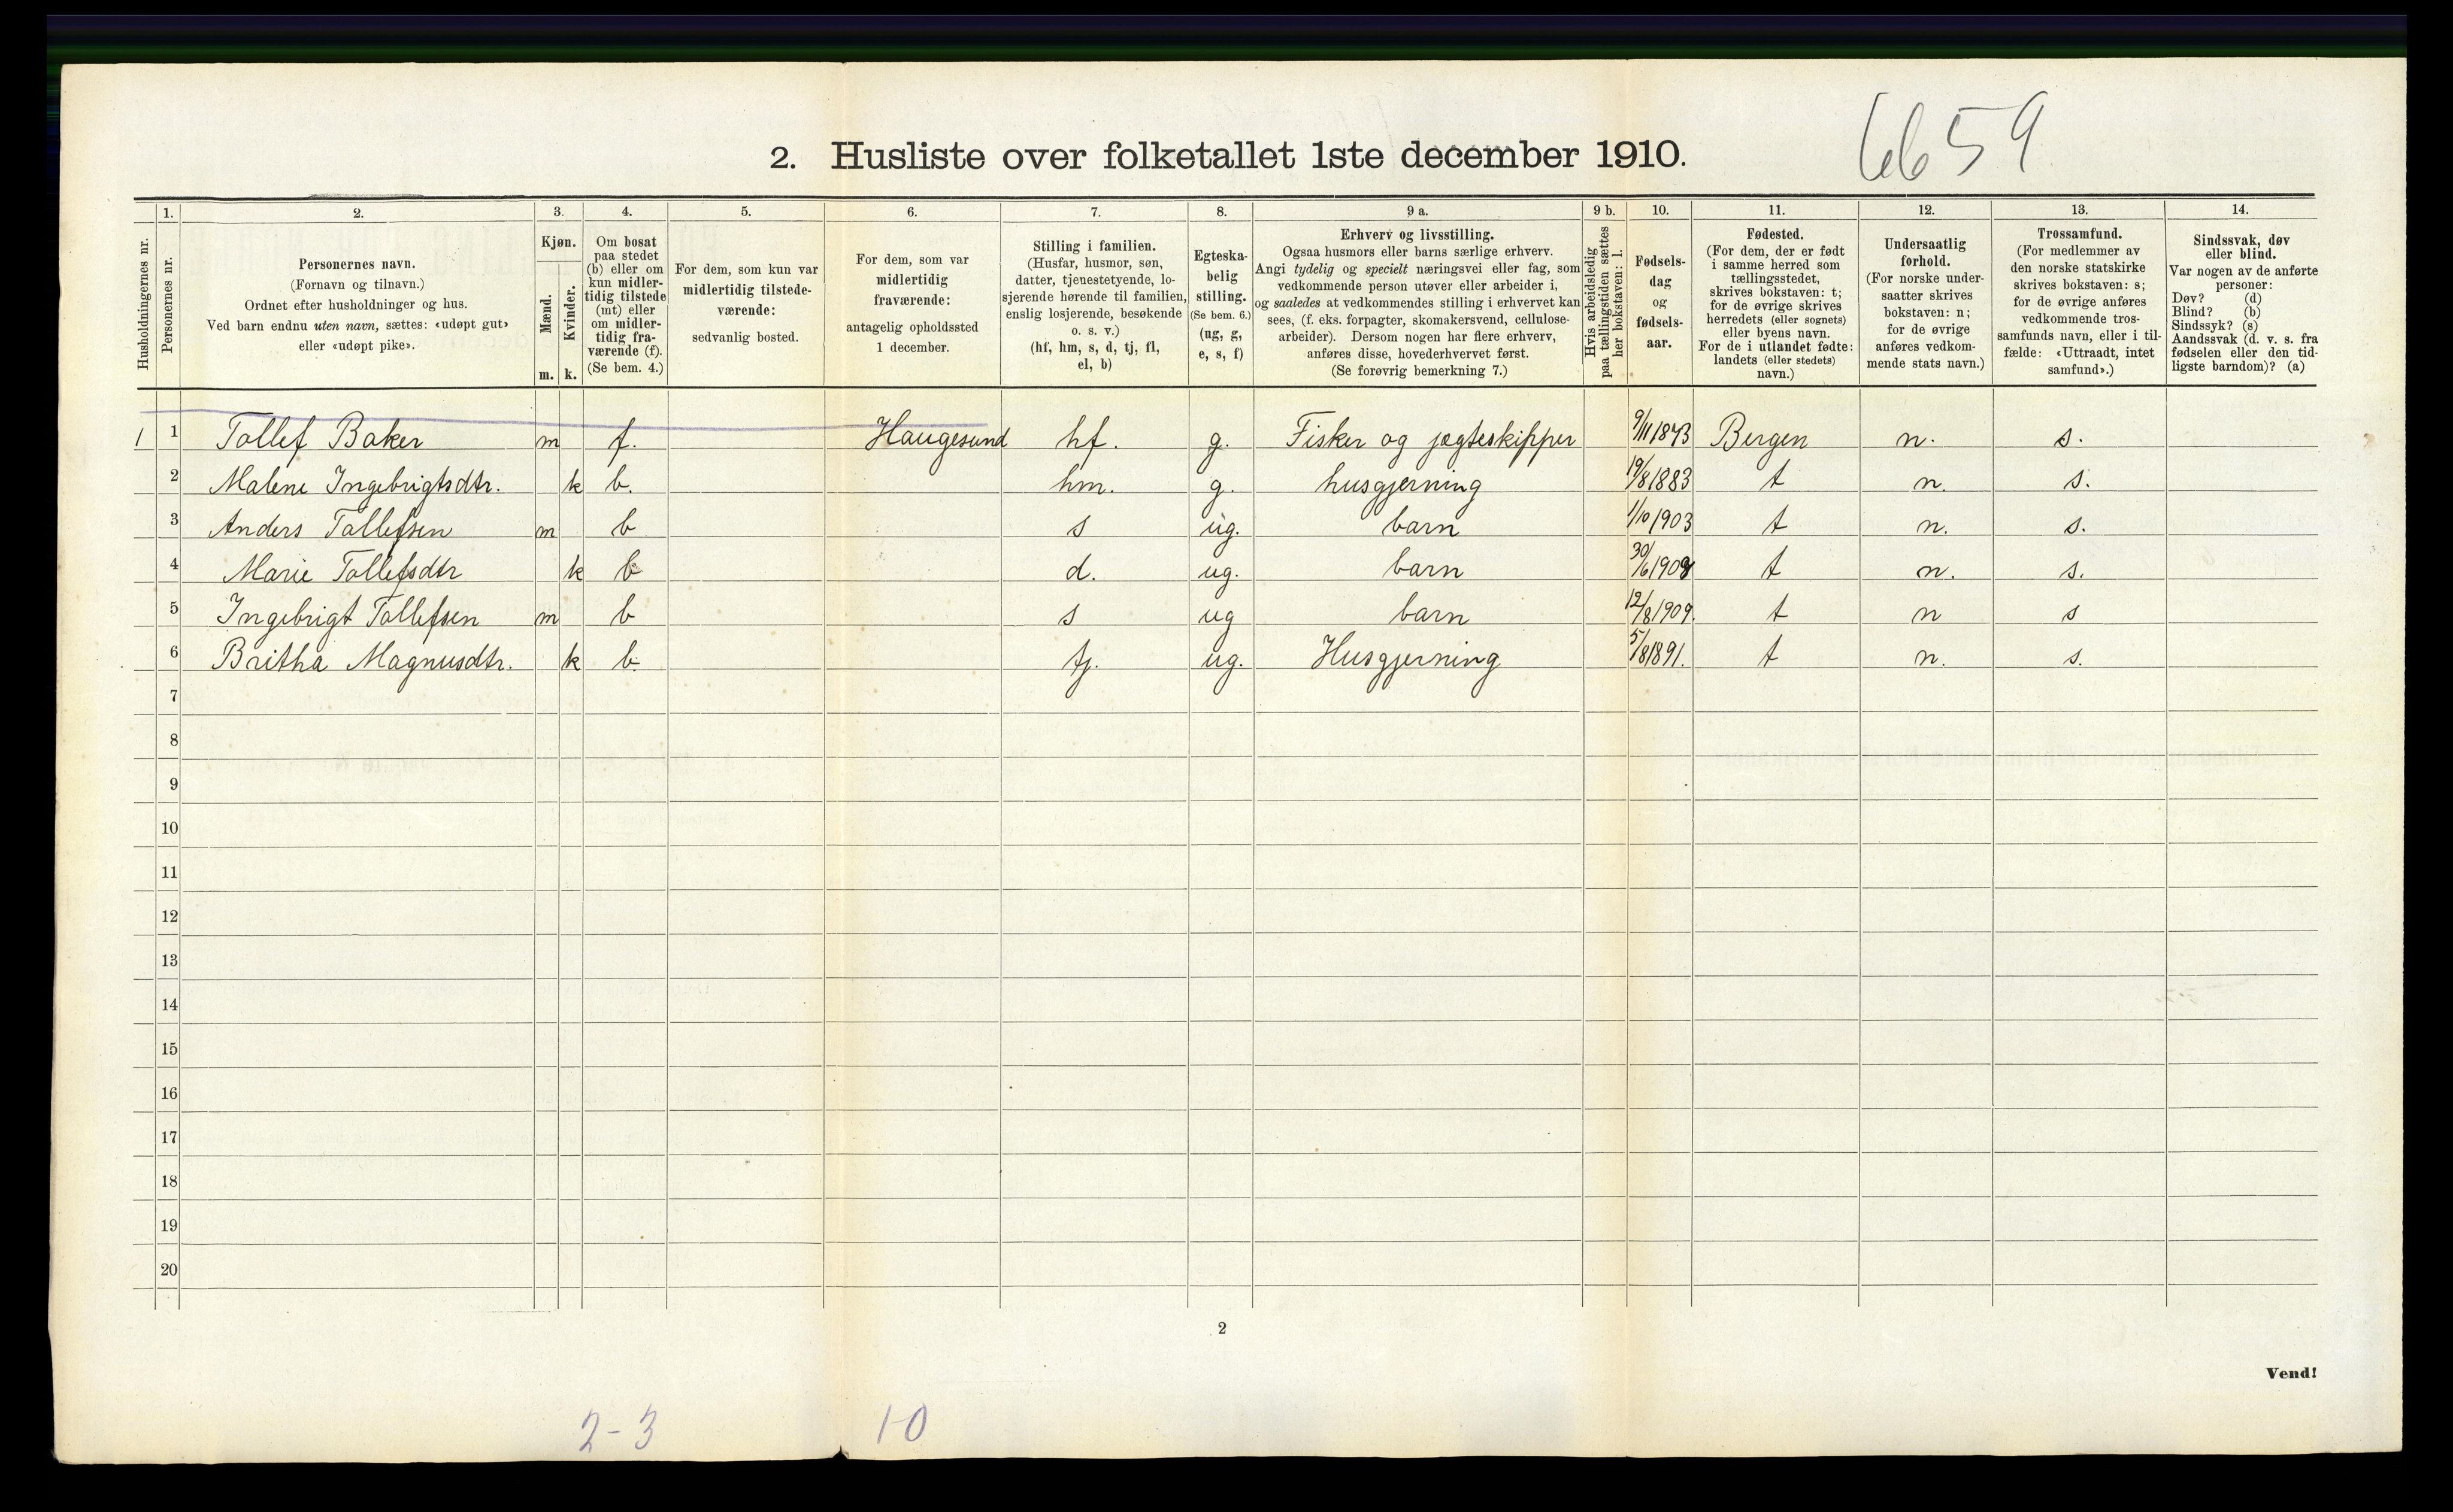 2. Husliste over folketallet 1ste december 1910.
6659
1. 2. 3. 4. 5. 6. 7. 8. 9 a. 9 b. 10. 11. 12. 13. 14.
Husholdningernes nr.
Personernes nr.
Personernes navn.
(Fornavn og tilnavn.)
Ordnet efter husholdninger og hus.
Ved barn endnu uten navn, sættes: «udøpt gut»
eller «udøpt pike».
Kjøn.
Mænd.
Kvinder.
m. k.
Om bosat
paa stedet
(b) eller om
kun midler-
tidig tilstede
(mt) eller
om midler-
tidig fra-
værende (f).
(Se bem. 4.)
For dem, som kun var
midlertidig tilstede-
værende:
sedvanlig bosted.
For dem, som var
midlertidig
fraværende:
antagelig opholdssted
1 december.
Stilling i familien.
(Husfar, husmor, søn,
datter, tjenestetyende, lo-
sjerende hørende til familien,
enslig losjerende, besøkende
o. s. v.)
(hf, hm, s, d, tj, fl,
el, b)
Egteska-
belig
stilling.
(Se bem. 6.)
(ug, g,
e, s, f)
Erhverv og livsstilling.
Ogsaa husmors eller barns særlige erhverv.
Angi tydelig og specielt næringsvei eller fag, som
vedkommende person utøver eller arbeider i,
og saaledes at vedkommendes stilling i erhvervet kan
sees, (f. eks. forpagter, skomakersvend, cellulose-
arbeider). Dersom nogen har flere erhverv,
anføres disse, hovederhvervet først.
(Se forøvrig bemerkning 7.)
Hvis arbeidsledig
paa tællingstiden sættes
her bokstaven: l.
Fødsels-
dag
og
fødsels-
aar.
Fødested.
(For dem, der er født
i samme herred som
tællingsstedet,
skrives bokstaven: t;
for de øvrige skrives
herredets (eller sognets)
eller byens navn.
For de i utlandet fødte:
landets (eller stedets)
navn.)
Undersaatlig
forhold.
(For norske under-
saatter skrives
bokstaven: n;
for de øvrige
anføres vedkom-
mende stats navn.)
Trossamfund.
(For medlemmer av
den norske statskirke
skrives bokstaven: s;
for de øvrige anføres
vedkommende tros-
samfunds navn, eller i til-
fælde: «Uttraadt, intet
samfund».)
Sindssvak, døv
eller blind.
Var nogen av de anførte
personer:
Døv? (d)
Blind? (b)
Sindssyk? (s)
Aandssvak (d. v. s. fra
fødselen eller den tid-
ligste barndom)? (a)
1 1 Tollef Baker m f. Haugesund hf. g. Fisker og jægteskipper 9/11 1873 Bergen n. s.
2 Malene Ingebrigtsdtr. k b. hm. g. husgjerning 19/8 1883 t n. s.
3 Anders Tollefsen m b s ug. barn 1/10 1903 t n. s.
4 Marie Tollefsdtr k b d. ug. barn 30/6 1908 t n. s.
5 Ingebrigt Tollefsen m b s ug barn 12/8 1909. t n s
6 Britha Magnusdtr. k b. tj. ug. Husgjerning 5/8 1891. t n. s.
7
8
9
10
11
12
13
14
15
16
17
18
19
20
2
Vend!
2-3 1-0